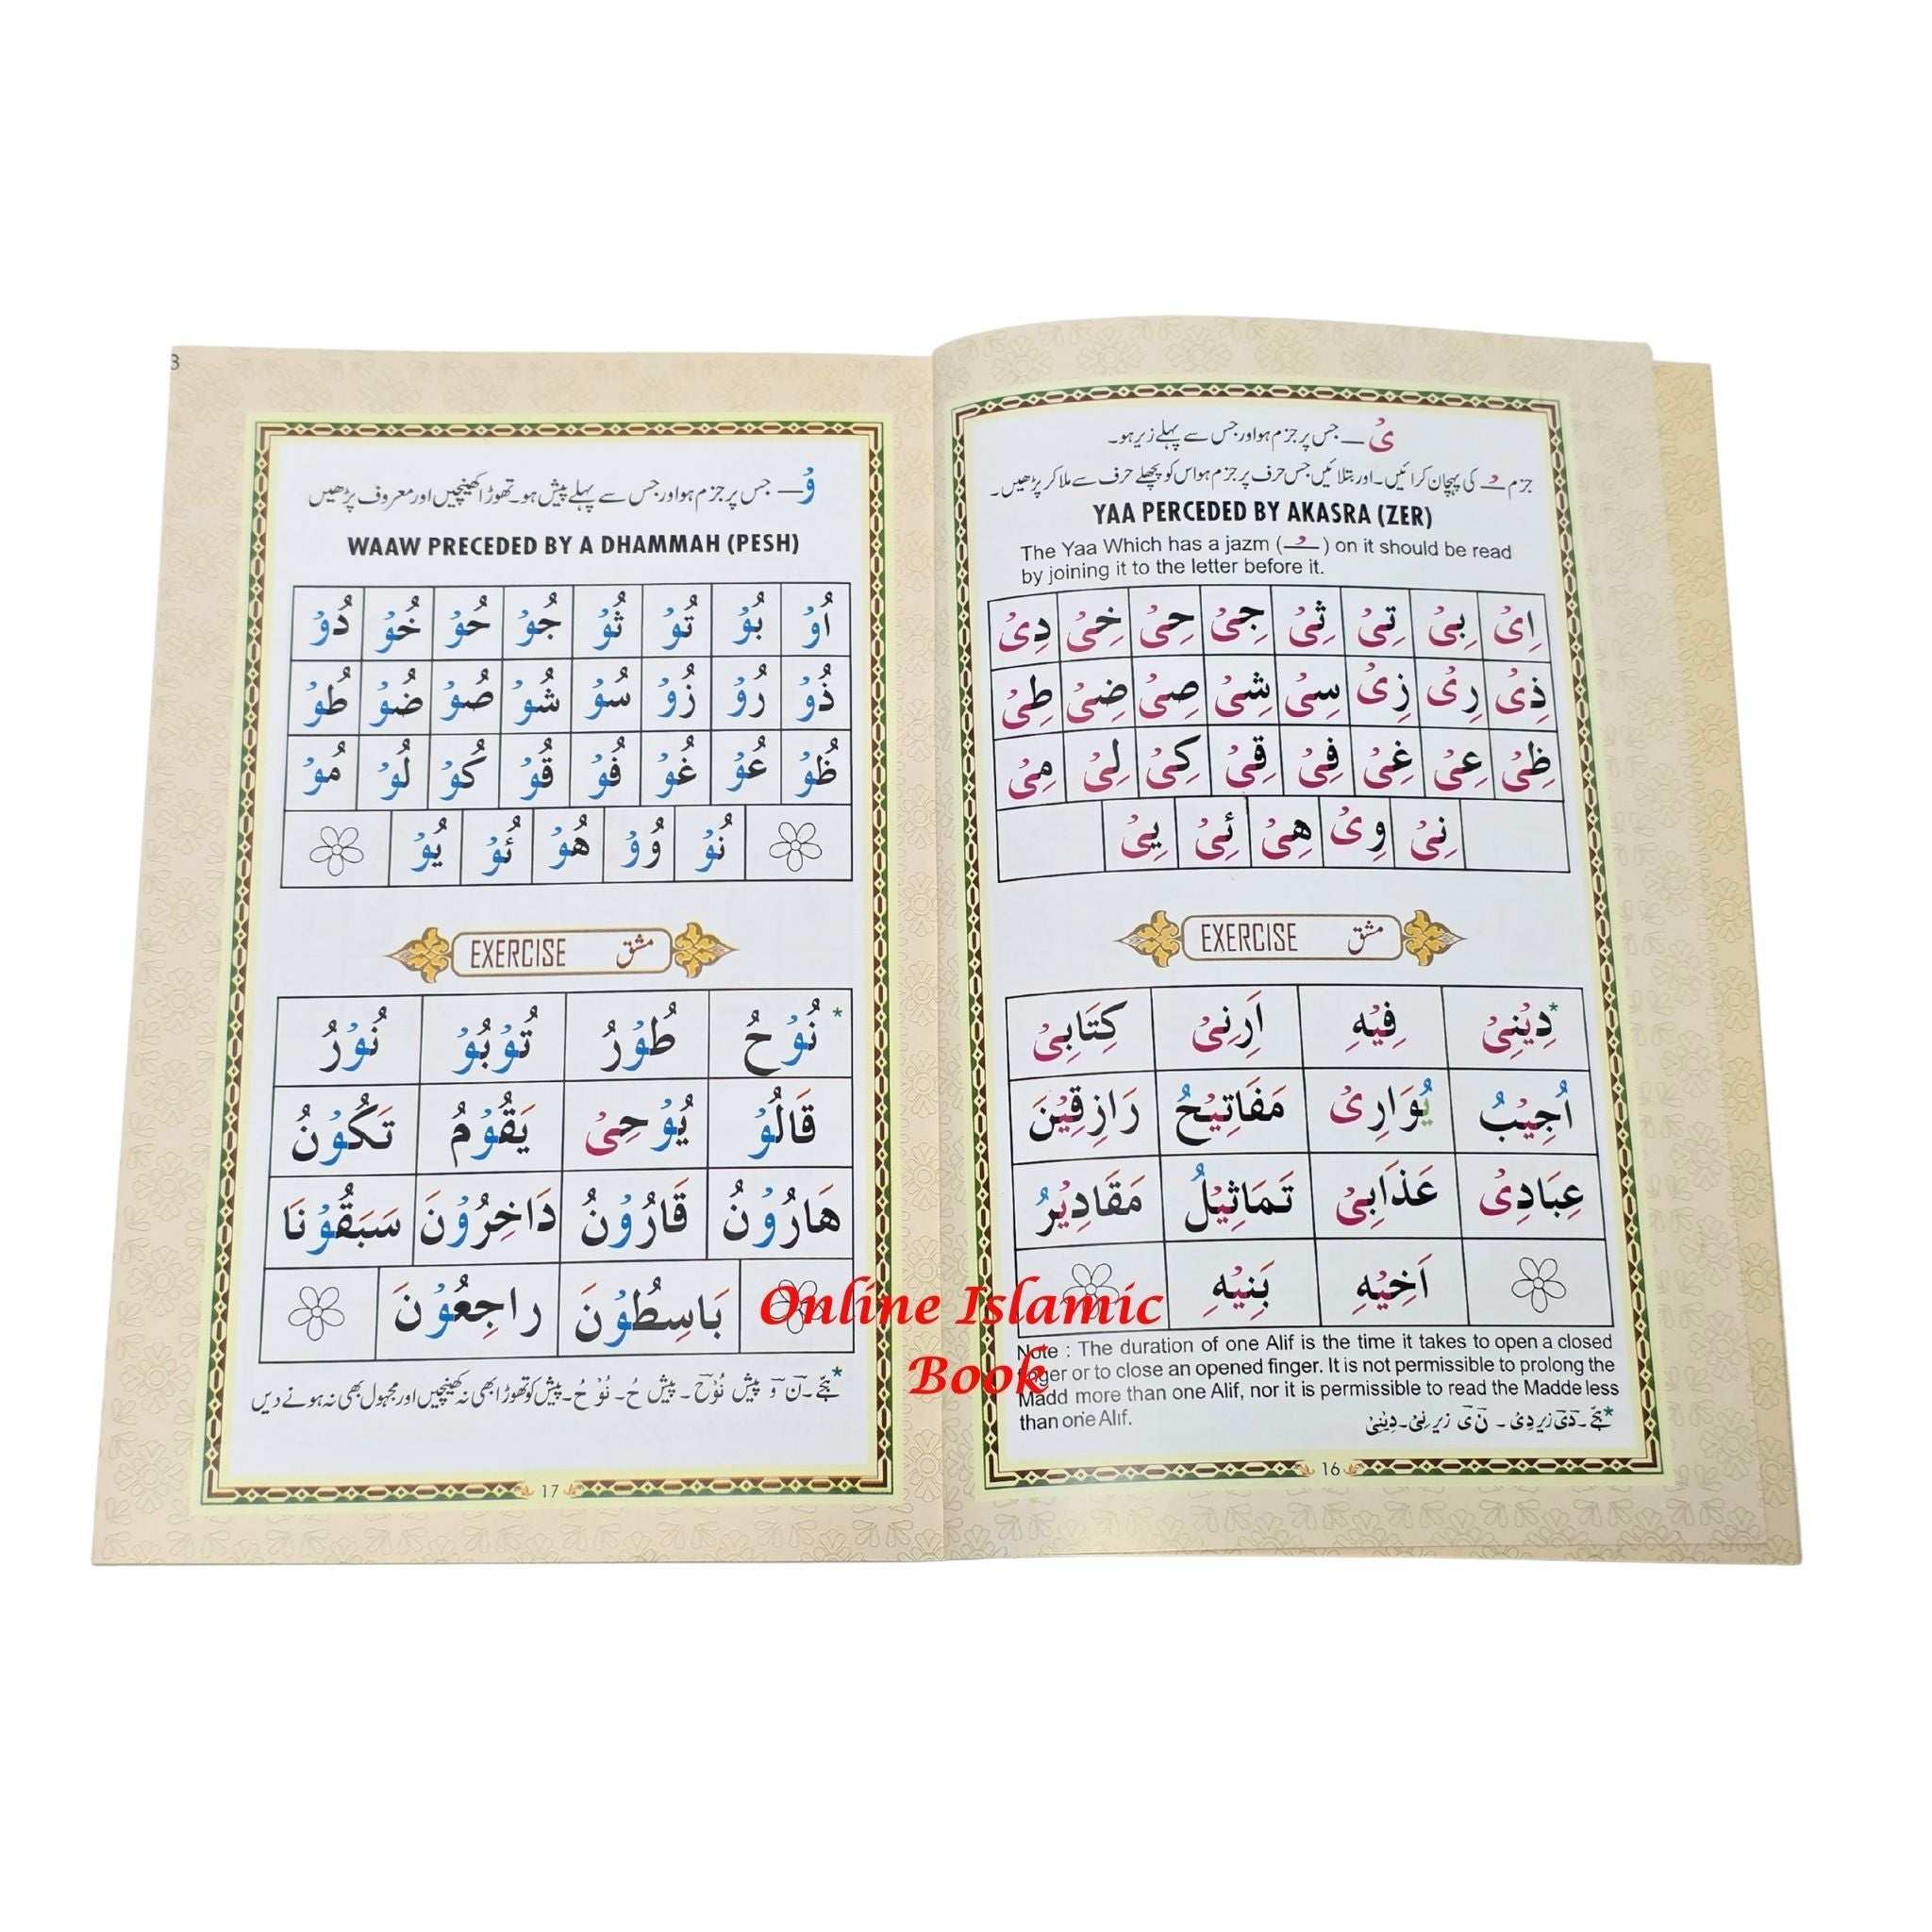 یْ — جس پر جزم ہو اور جس سے پہلے زیر ہو۔
جزم ـْـ کی پہچان کرائیں۔ اور بتلائیں جس حرف پر جزم ہو اس کو پچھلے حرف سے ملا کر پڑھیں۔
YAA PERCEDED BY AKASRA (ZER)
The Yaa Which has a jazm (ـْـ) on it should be read
by joining it to the letter before it.
اِیْ بِیْ تِیْ ثِیْ جِیْ حِیْ خِیْ دِیْ
ذِیْ رِیْ زِیْ سِیْ شِیْ صِیْ ضِیْ طِیْ
ظِیْ عِیْ غِیْ فِیْ قِیْ کِیْ لِیْ مِیْ
نِیْ وِیْ هِیْ ئِیْ یِیْ
EXERCISE مشق
*دِیْنِیْ فِیْهِ اَرِنِیْ کِتَابِیْ
اُجِیْبُ یُوَارِیْ مَفَاتِیْحُ رَازِقِیْنَ
عِبَادِیْ عَذَابِیْ تَمَاثِیْلُ مَقَادِیْرُ
اَخِیْهِ بَنِیْهِ
Note : The duration of one Alif is the time it takes to open a closed
finger or to close an opened finger. It is not permissible to prolong the
Madd more than one Alif, nor it is permissible to read the Madde less
than one Alif.
*ہجّے۔ دَیَ زیر دِیْ ۔ نَ یَ زیر نِیْ۔ دِیْنِیْ
16
3
وْ — جس پر جزم ہو اور جس سے پہلے پیش ہو۔ تھوڑا کھینچیں اور معروف پڑھیں
WAAW PRECEDED BY A DHAMMAH (PESH)
اُوْ بُوْ تُوْ ثُوْ جُوْ حُوْ خُوْ دُوْ
ذُوْ رُوْ زُوْ سُوْ شُوْ صُوْ ضُوْ طُوْ
ظُوْ عُوْ غُوْ فُوْ قُوْ کُوْ لُوْ مُوْ
نُوْ وُوْ هُوْ ئُوْ یُوْ
EXERCISE مشق
*نُوْحُ طُوْرُ تُوْبُوْ نُوْرُ
قَالُوْ یُوْحِیْ یَقُوْمُ تَکُوْنُ
هَارُوْنُ قَارُوْنُ دَاخِرُوْنَ سَبَقُوْنَا
بَاسِطُوْنَ راجِعُوْنَ
*ہجّے۔ نَ وَ پیش نُوْحَ۔ پیش حُ۔ نُوْحُ۔ پیش کو تھوڑا بھی نہ کھینچیں اور مجہول بھی نہ ہونے دیں
17
Online Islamic
Book